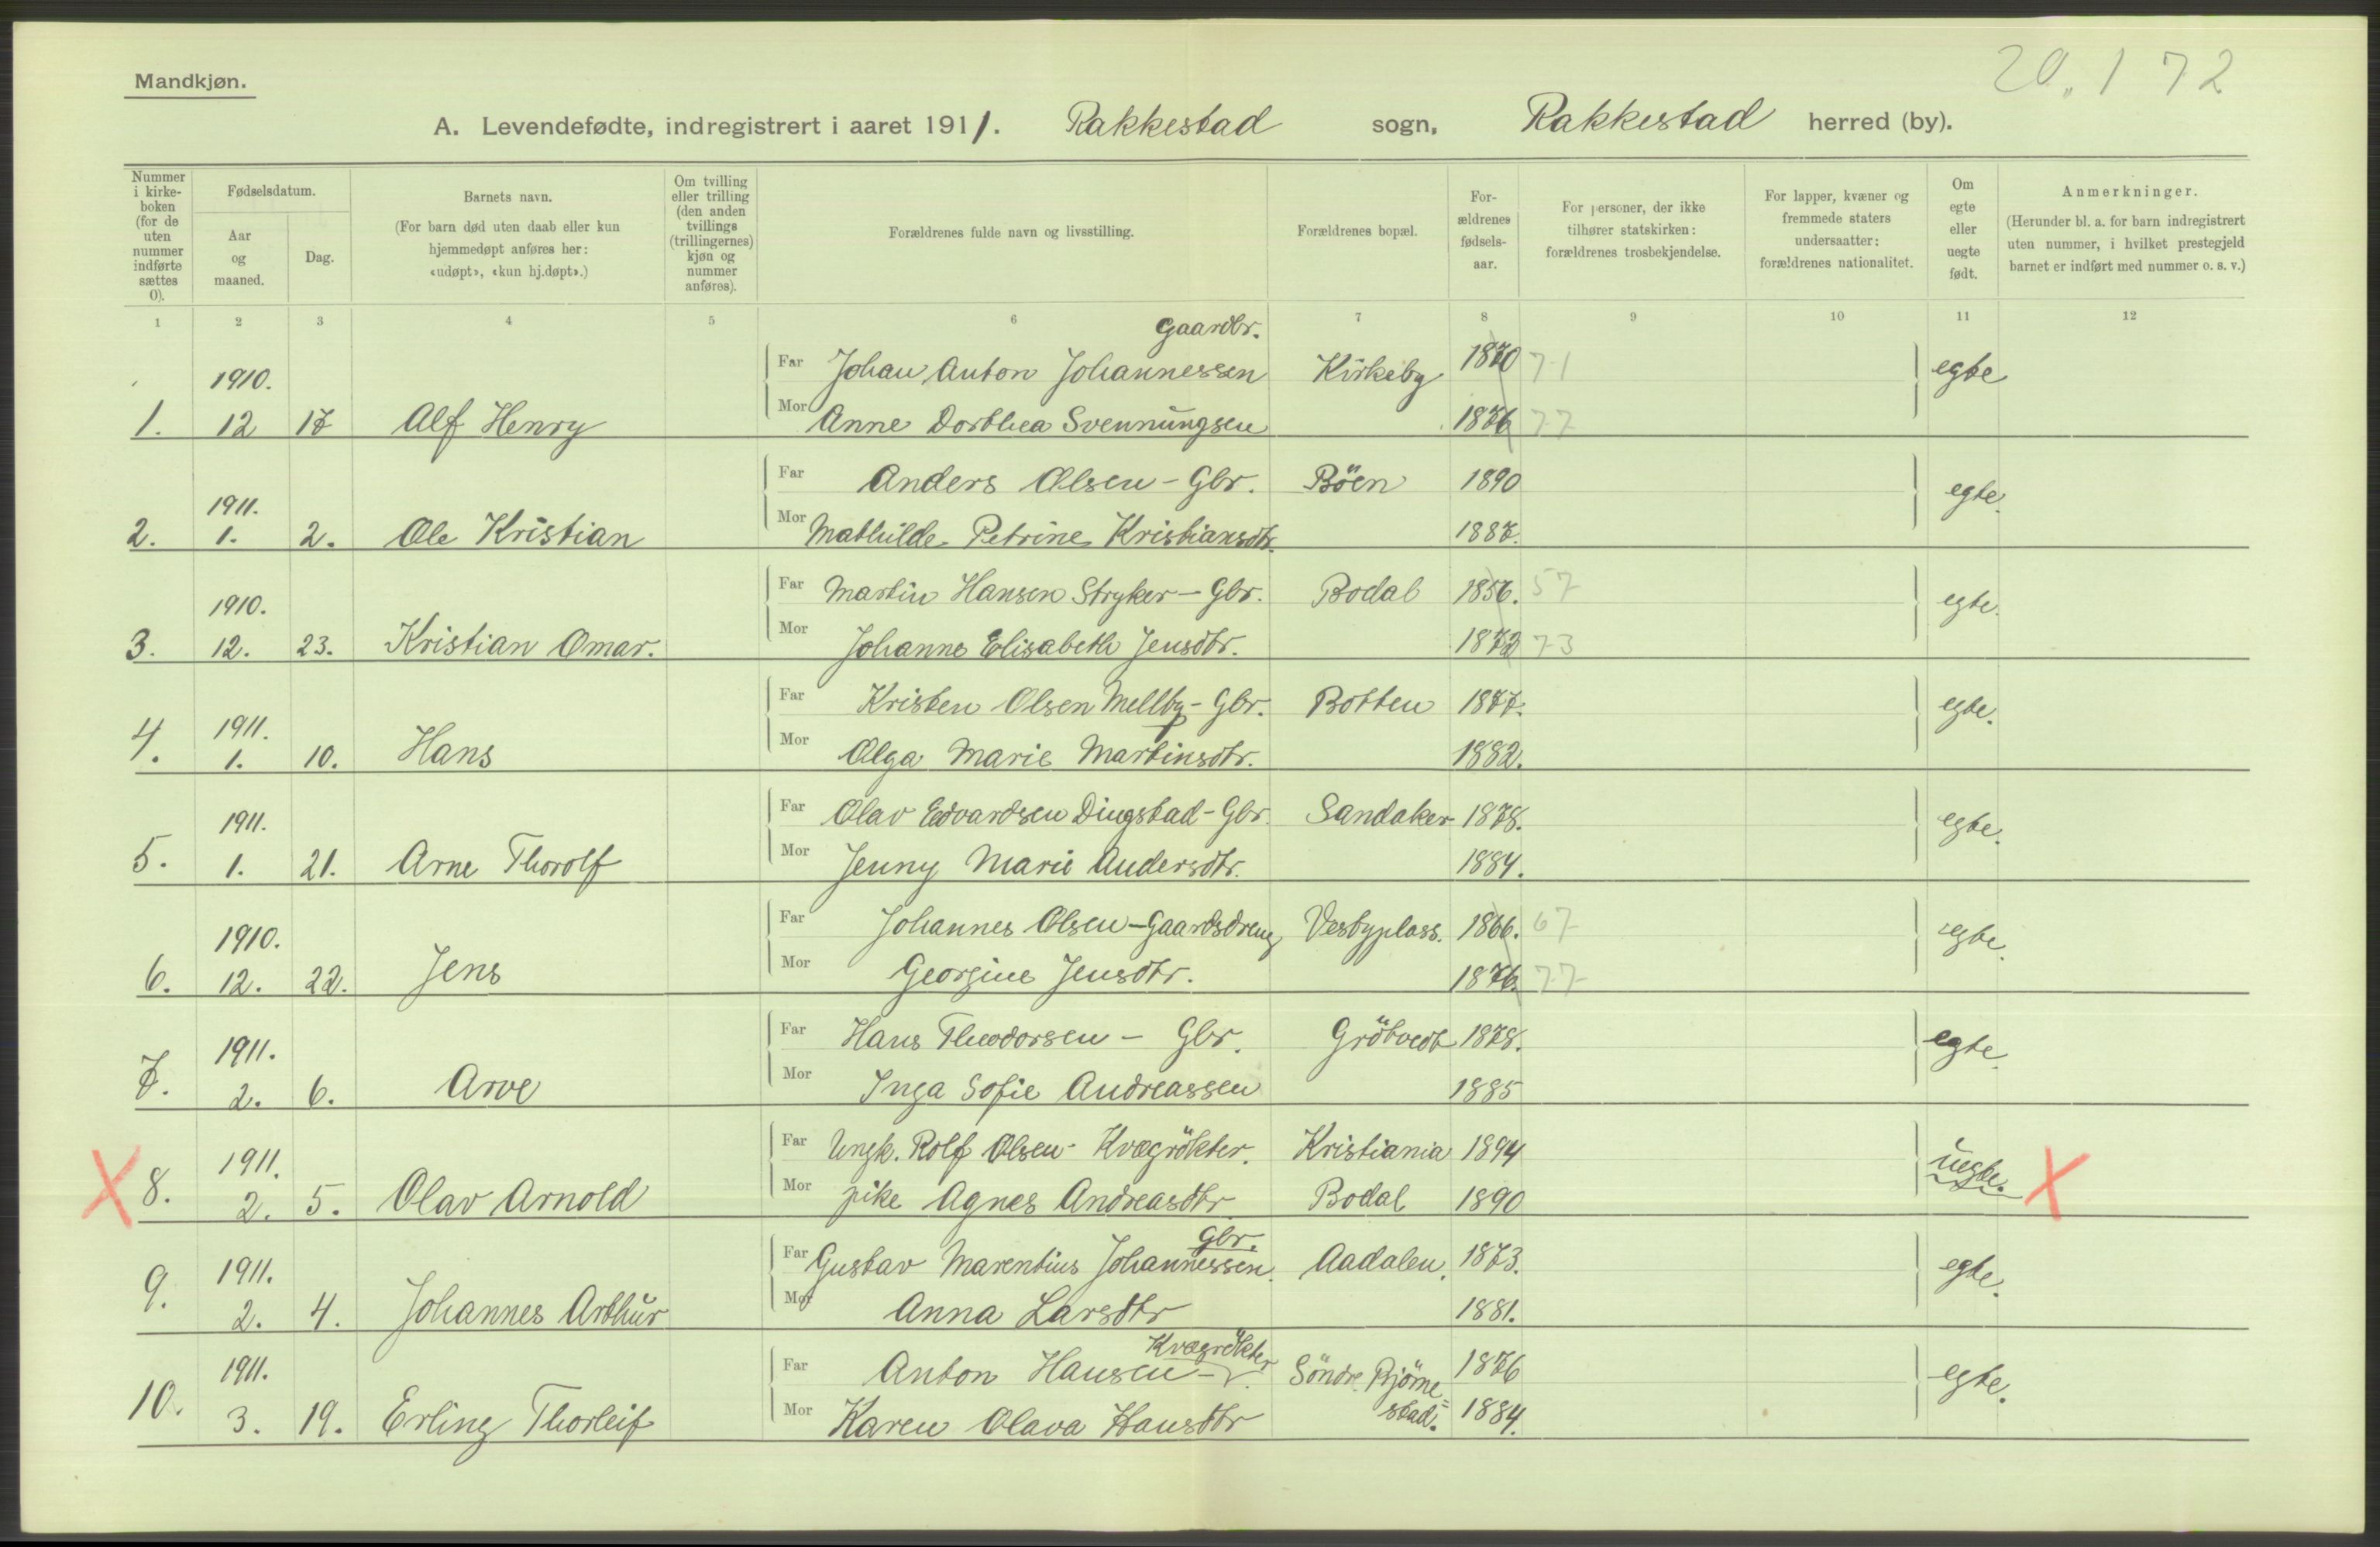 20.,1 72
Mandkjøn.
A. Levendefødte, indregistrert i aaret 1911. Rakkestad sogn, Rakkestad herred (by).
Nummer i kirke- boken (for de uten nummer indførte sættes 0).
Fødselsdatum.
Aar og maaned.
Dag.
Barnets navn.
(For barn død uten daab eller kun hjemmedøpt anføres her: «udøpt», «kun hj.døpt».)
Om tvilling eller trilling (den anden tvillings (trillingernes) kjøn og nummer anføres).
Forældrenes fulde navn og livsstilling.
Forældrenes bopæl.
For- ældrenes fødsels- aar.
For personer, der ikke tilhører statskirken: forældrenes trosbekjendelse.
For lapper, kvæner og fremmede staters undersaatter: forældrenes nationalitet.
Om egte eller uegte født.
Anmerkninger.
(Herunder bl. a. for barn indregistrert uten nummer, i hvilket prestegjeld barnet er indført med nummer o. s. v.)
1 2 3 4 5 6 7 8 9 10 11 12
Gaardbr.
1910. Far Johan Anton Johannessen Kirkeby 1870 71 egte
1. 12 17 Alf Henry Mor Anne Dorthea Svennungsen 1876 77
Far Anders Olsen - Gbr. Böen 1890 egte.
1911.
2. 1. 2. Ole Kristian Mor Mathilde Petrine Kristiansdtr. 1887.
Far Martin Hansen Stryker - Gbr. Bodal 1856. 57 egte.
1910.
3. 12. 23. Kristian Omar. Mor Johanne Elisabeth Jensdtr. 1872 73
Far Kristen Olsen Mellby - Gbr. Botten 1877. egte.
1911.
4. 1. 10. Hans Mor Olga Marie Martinsdtr. 1882.
Far Olav Edvardsen Dingstad - Gbr. Sandaker 1878. egte.
1911.
5. 1. 21. Arne Thorolf Mor Jenny Marie Andersdtr. 1884.
Far Johannes Olsen - Gaardsdreng Vesbyplass. 1866. 67 egte.
1910.
6. 12. 22. Jens Mor Georgine Jensdtr. 1876. 77
Far Hans Theodorsen - Gbr. Grötvedt 1878. egte.
1911.
7. 2. 6. Arve Mor Inga Sofie Andreassen 1885
Far Ungk. Rolf Olsen - Kvægrökter. Kristiania 1894 uegte. X
1911.
X 8. 2. 5. Olav Arnold Mor pike Agnes Andreasdtr Bodal 1890
Gbr.
1911. Far Gustav Marentius Johannessen. Aadalen. 1873. egte.
9. 2. 4. Johannes Arthur Mor Anna Larsdtr 1881.
Kvægrökter
1911. Far Anton Hansen - Söndre Bjørne= 1876 egte.
stad.
10. 3. 19. Erling Thorleif Mor Karen Olava Hansdtr 1884.